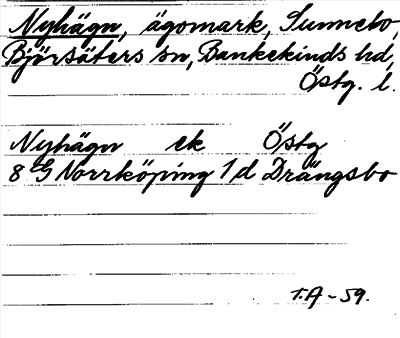 Nyhägn, ägomark, Sunnebo,
Björsäters sn, Bankekinds hd,
Östg. l.
Nyhägn ek Östg
8 G Norrköping 1 d Drängsbo
T.A - 59.